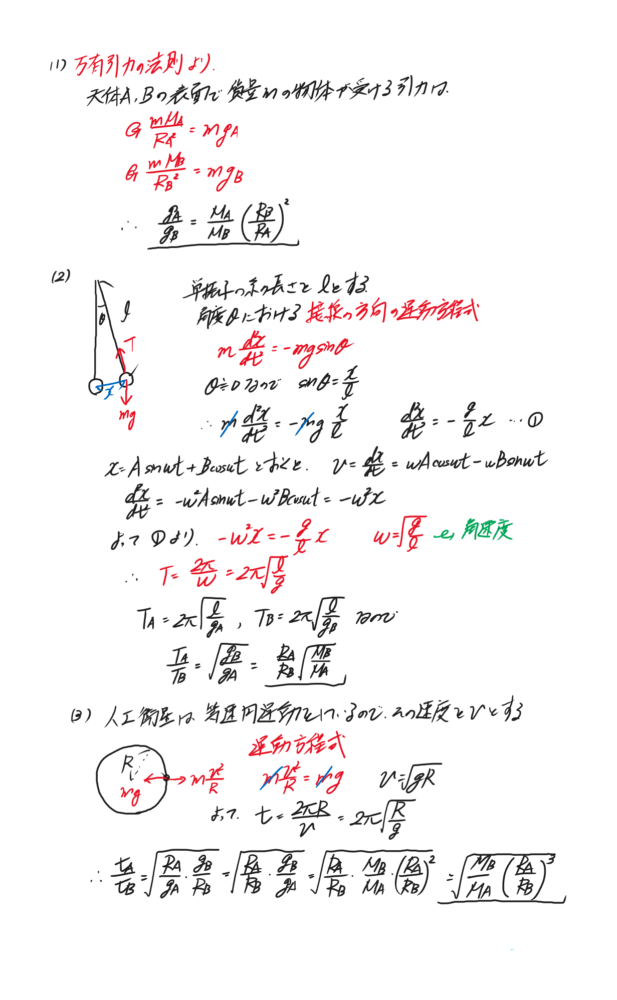 (1) 万有引力の法則より.
天体A,Bの表面で質量mの物体が受ける引力は.
G mMA/RA² = mgA
G mMB/RB² = mgB
∴ gA/gB = MA/MB (RB/RA)²
(2) 単振子の糸の長さを l とする.
角度θにおける接線の方向の運動方程式
θ l T x mg
m d²x/dt² = -mg sinθ
θ≒0 なので sinθ = x/l
∴ m d²x/dt² = -mg x/l d²x/dt² = -g/l x …①
x = A sinωt + B cosωt とおくと. v = dx/dt = ωA cosωt - ωB sinωt
d²x/dt² = -ω²A sinωt - ω²B cosωt = -ω²x
よって ①より. -ω²x = -g/l x ω = √(g/l) 角速度
∴ T = 2π/ω = 2π√(l/g)
TA = 2π√(l/gA) , TB = 2π√(l/gB) なので
TA/TB = √(gB/gA) = RA/RB √(MB/MA)
(3) 人工衛星は等速円運動をしているので. その速度を v とする
運動方程式
R mg m v²/R m v²/R = mg v = √gR
よって. t = 2πR/v = 2π√(R/g)
∴ tA/tB = √(RA/gA · gB/RB) = √(RA/RB · gB/gA) = √(RA/RB · MB/MA · (RA/RB)²) = √(MB/MA (RA/RB)³)